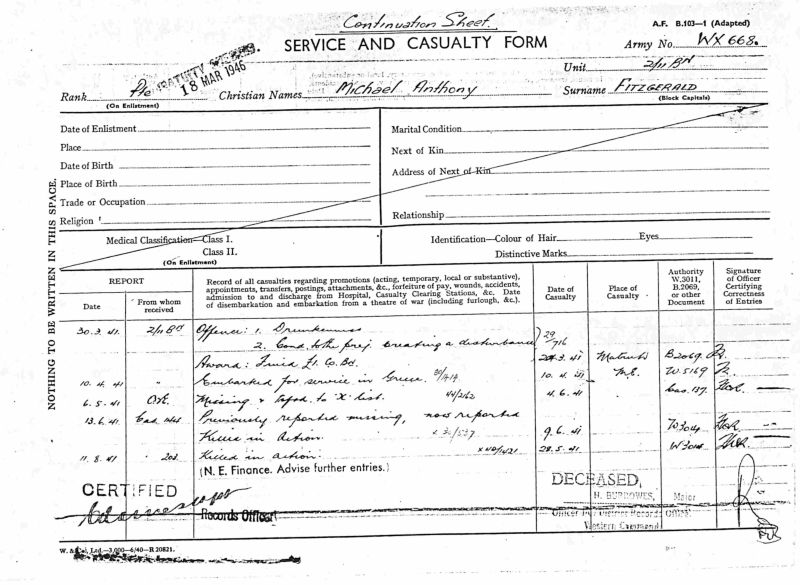 Continuation Sheet.
A.F. B.103—1 (Adapted)
SERVICE AND CASUALTY FORM
Army No. WX 668.
18 MAR 1946
Unit 2/11 Bn
Rank Pte Christian Names Michael Anthony Surname FITZGERALD
(On Enlistment) (Block Capitals)
Date of Enlistment
Place
Date of Birth
Place of Birth
Trade or Occupation
Religion
Marital Condition
Next of Kin
Address of Next of Kin
Relationship
Medical Classification—Class I.
Class II.
(On Enlistment)
Identification—Colour of Hair Eyes
Distinctive Marks
NOTHING TO BE WRITTEN IN THIS SPACE.
REPORT
Date
From whom received
Record of all casualties regarding promotions (acting, temporary, local or substantive),
appointments, transfers, postings, attachments, &c., forfeiture of pay, wounds, accidents,
admission to and discharge from Hospital, Casualty Clearing Stations, &c. Date
of disembarkation and embarkation from a theatre of war (including furlough, &c.).
Date of Casualty
Place of Casualty
Authority W.3011, B.2069, or other Document
Signature of Officer Certifying Correctness of Entries
30.3.41. 2/11 Bn Offence: 1. Drunkenness
2. Cond. to the prej. creating a disturbance 29/716
Award: Fined £1. Co. Bd. 3.41 B2069
10.4.41 " Embarked for service in Greece. 10.4.41 M.E. W5169
6.5.41 Missing & to 'X' list. 44/2162 4.6.41 Cas.137.
13.6.41 Previously reported missing, now reported
Killed in Action. x 30/537 9.6.41 W3014
11.8.41 " 203 Killed in action. x 40/1421 28.5.41 W3014
(N. E. Finance. Advise further entries.)
CERTIFIED
Records Officer
DECEASED,
H. BURROWES, Major
Officer i/c District Records Office
Western Command
W. & Co., Ltd.—3,000—6/40—R 20821.